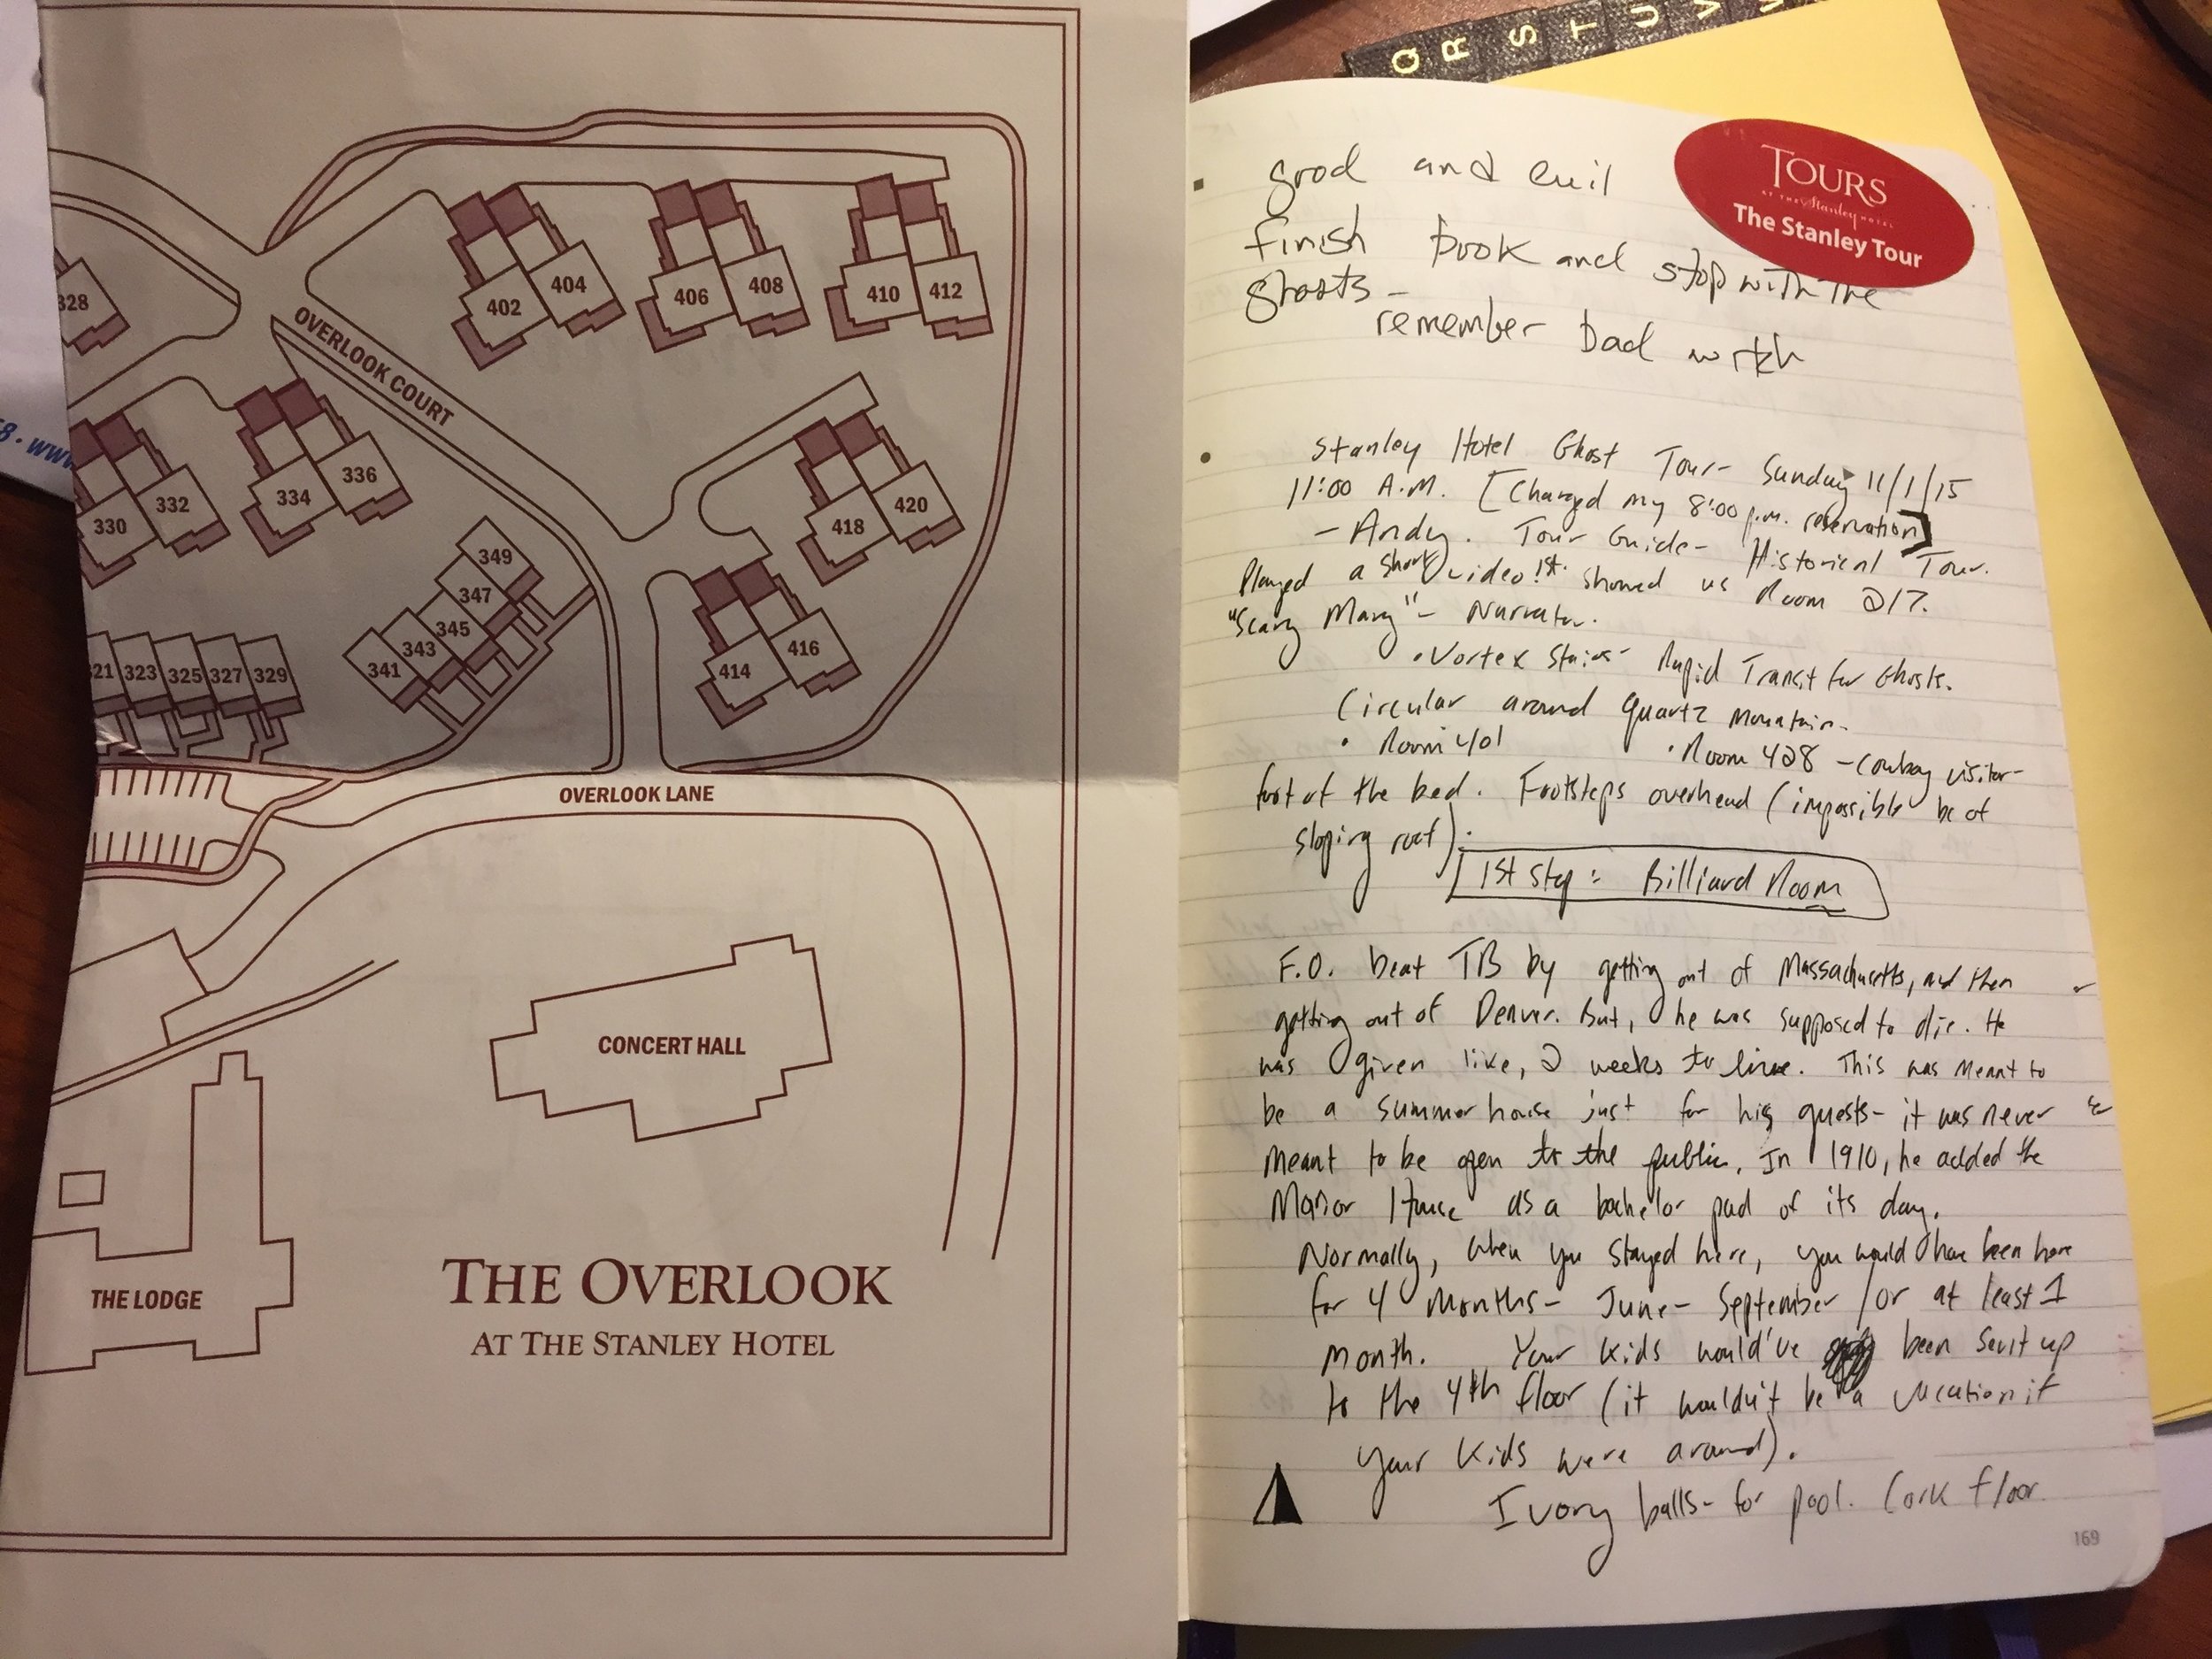 328
OVERLOOK COURT
402
404
406
408
410
412
330
332
334
336
418
420
349
347
345
343
341
414
416
323
325
327
329
OVERLOOK LANE
CONCERT HALL
THE LODGE
THE OVERLOOK
AT THE STANLEY HOTEL
Q R S T U V
TOURS
AT THE Stanley HOTEL
The Stanley Tour
good and evil
finish book and stop with the
ghosts -
remember Dad
Stanley Hotel Ghost Tour - Sunday 11/1/15
11:00 A.M. [Changed my 8:00 p.m. reservation]
- Andy. Tour Guide - Historical Tour.
Played a short video 1st. showed us Room 217.
"Scary Mary" - Narrator.
• Vortex Stairs - Rapid Transit for Ghosts.
Circular around Quartz Mountain.
• Room 401 • Room 428 - Cowboy visitor -
foot of the bed. Footsteps overhead (impossible bc of
sloping roof).
1st Stop: Billiard Room
F.O. beat TB by getting out of Massachusetts, and then
getting out of Denver. But, he was supposed to die. He
was given like, 2 weeks to live. This was meant to
be a summer house just for his guests - it was never
meant to be open to the public. In 1910, he added the
Manor House as a bachelor pad of its day.
Normally, when you stayed here, you would have been here
for 4 months - June - September / or at least 1
month. Your kids would've been sent up
to the 4th floor (it wouldn't be a vacation if
your kids were around).
Ivory balls - for pool. Cork floor
169